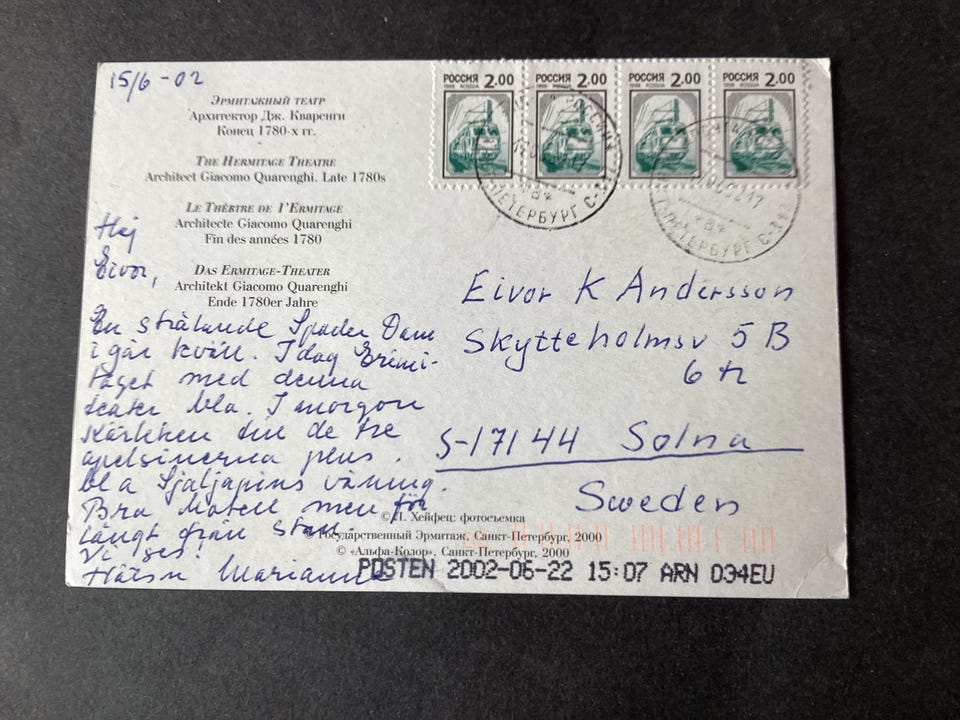 15/6 -02
ЭРМИТАЖНЫЙ ТЕАТР
Архитектор Дж. Кваренги
Конец 1780-х гг.
THE HERMITAGE THEATRE
Architect Giacomo Quarenghi. Late 1780s
LE THÈÂTRE DE L'ERMITAGE
Architecte Giacomo Quarenghi
Fin des années 1780
DAS ERMITAGE-THEATER
Architekt Giacomo Quarenghi
Ende 1780er Jahre
Hej
Eivor,
En strålande Spader Dam
i går kväll. I dag Eremi-
taget med denna
teater bla. I morgon
Kärleken till de tre
apelsinerna plus.
bl a Sjaljapins våning.
Bra hotell men för
långt från stan.
Vi ses!
Hälsn Marianne
РОССИЯ 2.00
1998 ROSSIJA
РОССИЯ 2.00
1998 ROSSIJA
РОССИЯ 2.00
1998 ROSSIJA
РОССИЯ 2.00
1998 ROSSIJA
С-ПЕТЕРБУРГ С-
С-ПЕТЕРБУРГ С-
Eivor K Andersson
Skytteholmsv 5 B
6 tr
S-171 44 Solna
Sweden
© Л. Хейфец: фотосъемка
© Государственный Эрмитаж, Санкт-Петербург, 2000
© «Альфа-Колор», Санкт-Петербург, 2000
POSTEN 2002-06-22 15:07 ARN 034EU